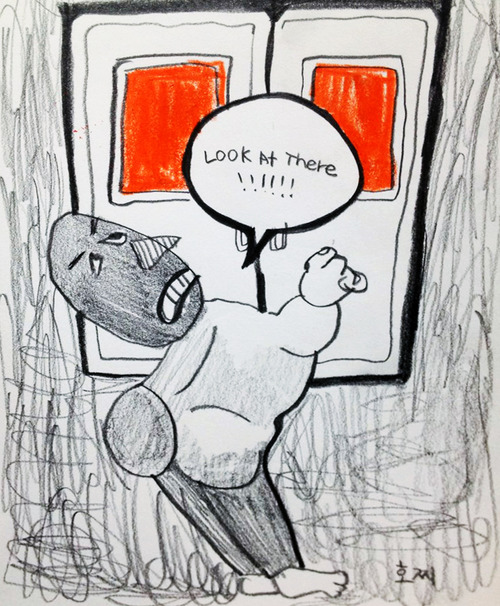 LOOK At There
!!!!!!
호찌